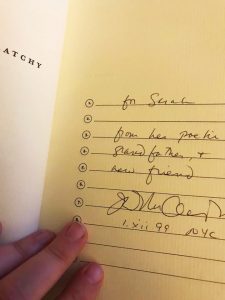 ATCHY
for Sarah
from her poetic
grandfather, +
new friend
1.xii 99 NYC